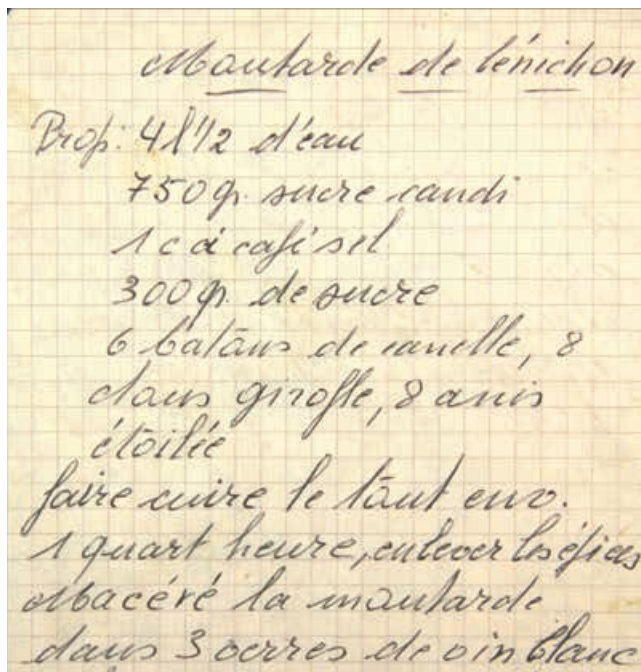 Moutarde de bénichon
Prop: 4 l 1/2 d'eau
750 gr. sucre candi
1 c à café sel
300 gr. de sucre
6 batôns de canelle, 8
clous girofle, 8 anis
étoilée
faire cuire le tout env.
1 quart heure, enlever les épices
Macéré la moutarde
dans 3 verres de vin blanc